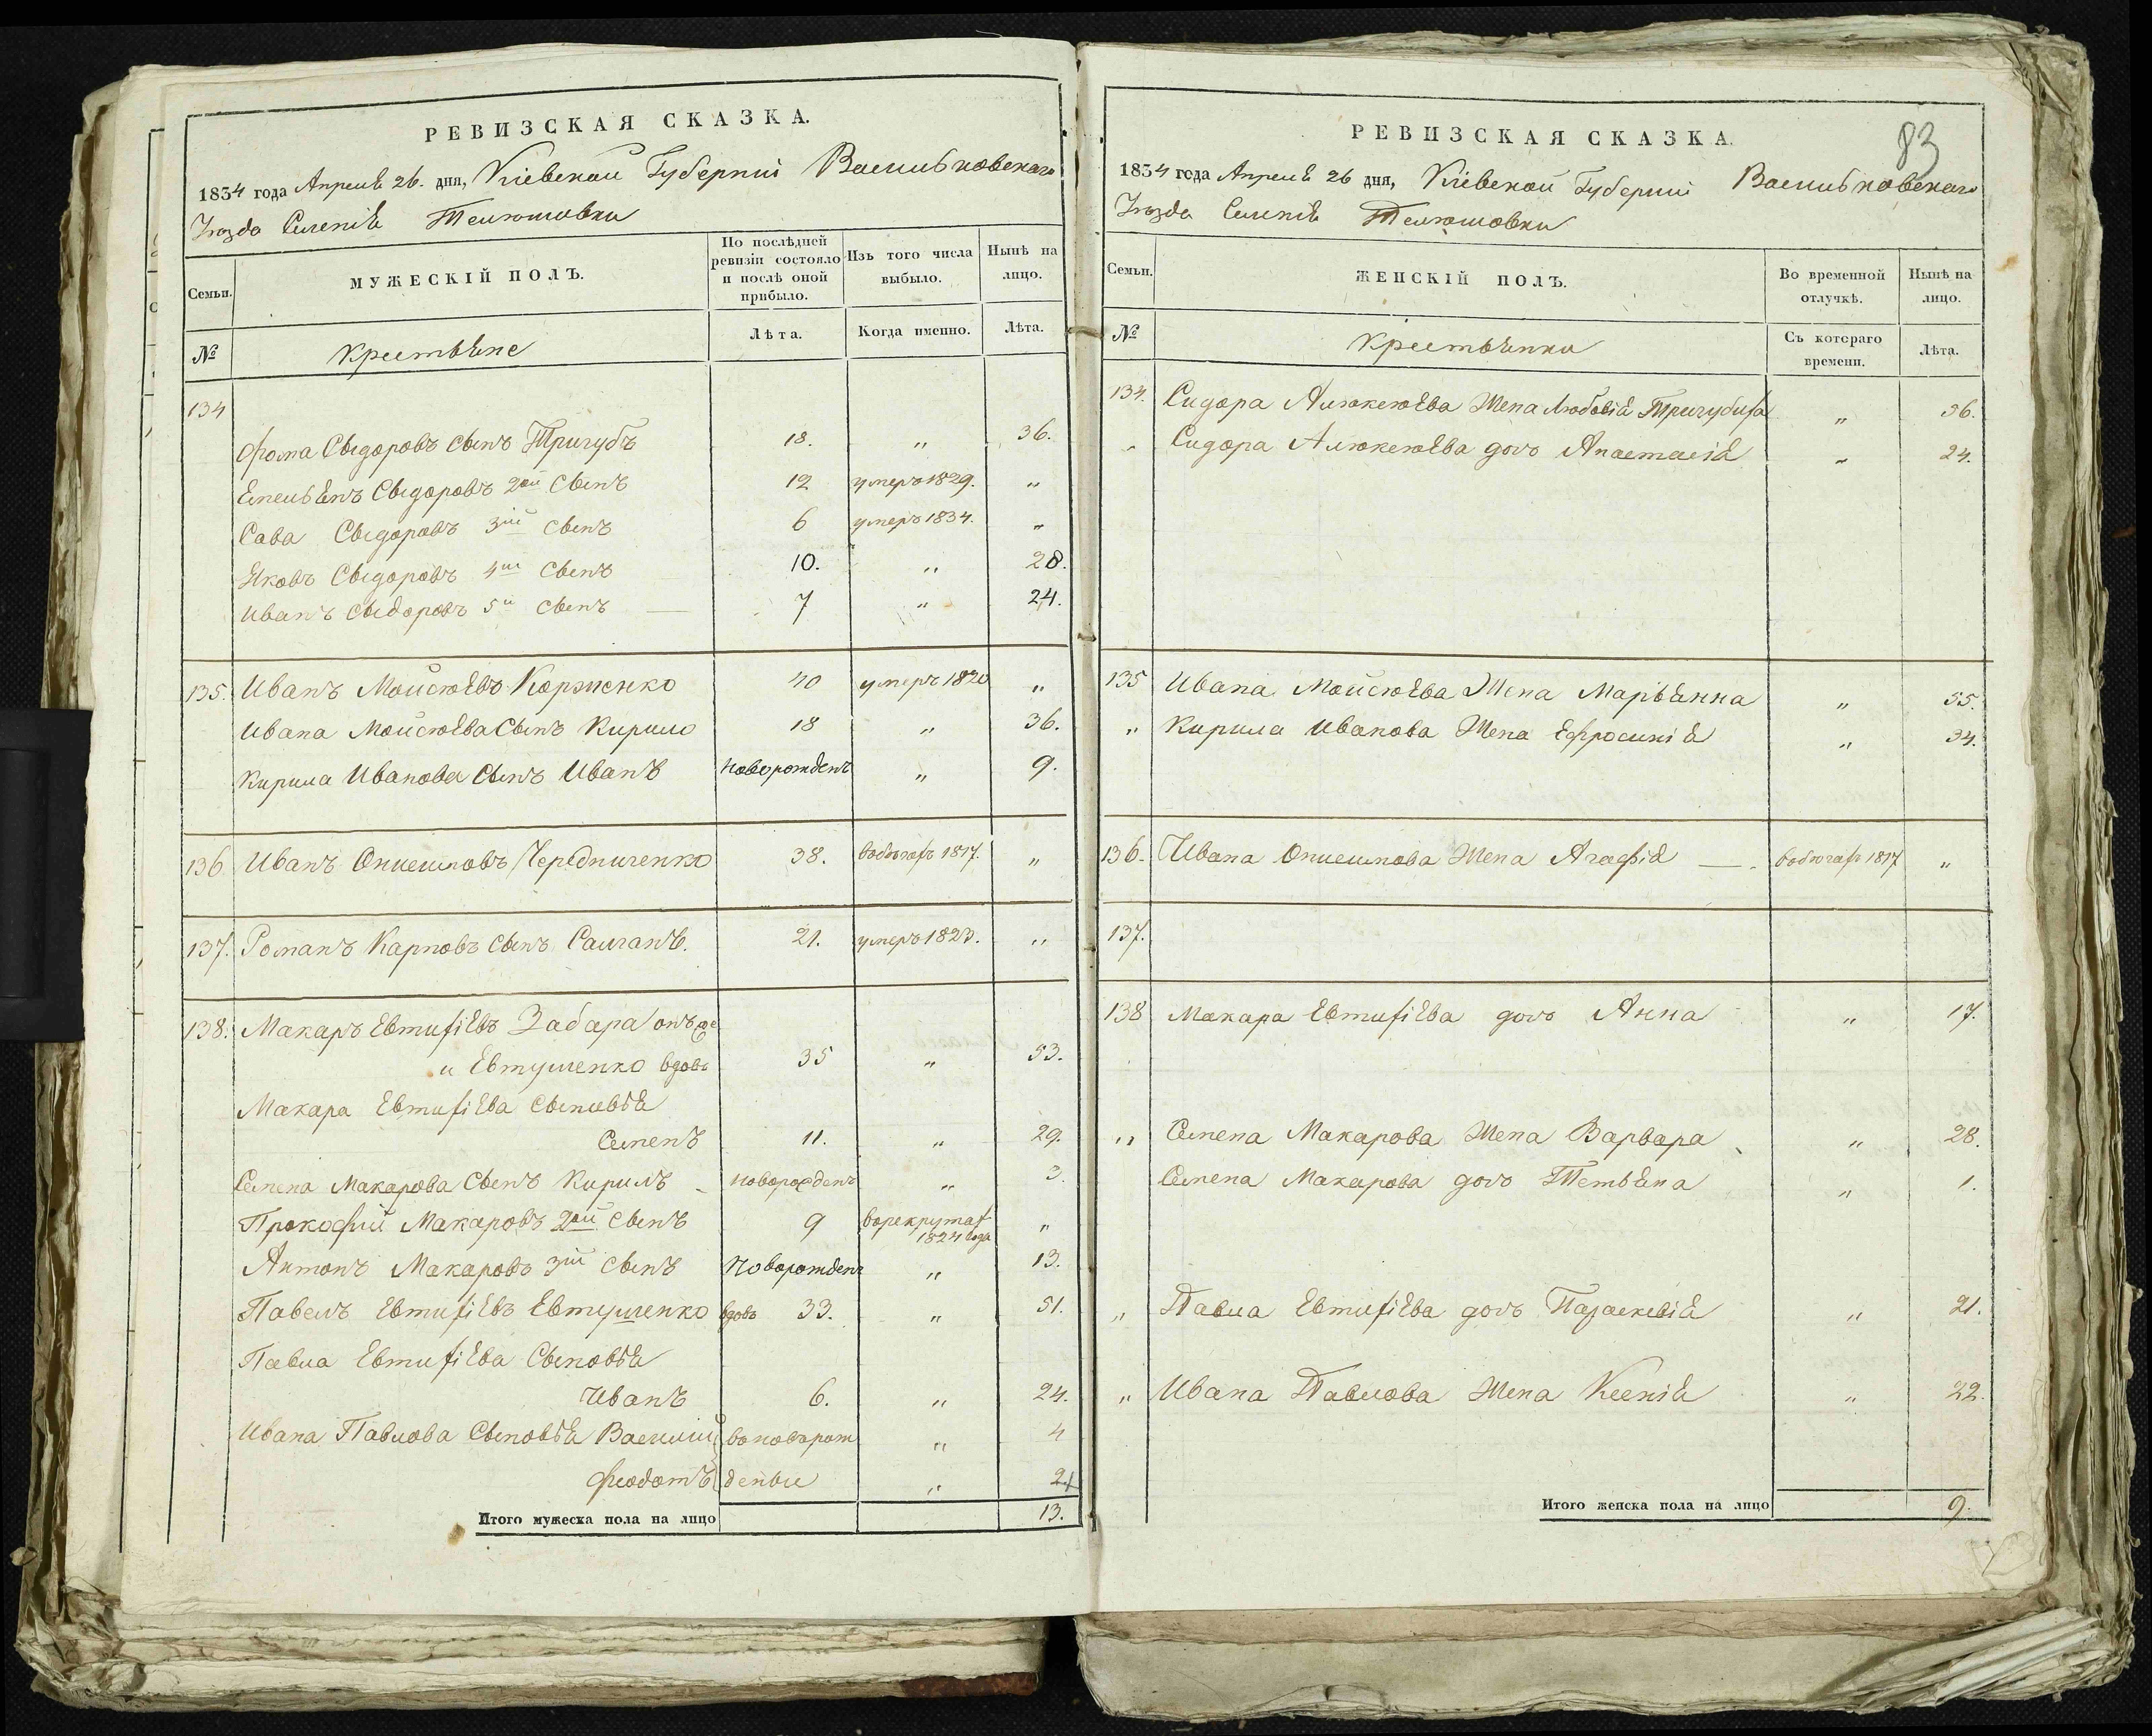 РЕВИЗСКАЯ СКАЗКА.
1834 года Апреля 26. дня, Кіевской Губерніи Васильковскаго
Уѣзда Селенія Телюшовки
Семьи. МУЖЕСКІЙ ПОЛЪ. По послѣдней ревизіи состояло и послѣ оной прибыло. Изъ того числа выбыло. Нынѣ на лицо.
№ Крестьяне Лѣта. Когда именно. Лѣта.
134
Фома Сыдоровъ сынъ Тригубъ 18. „ 36.
Емельянъ Сыдоровъ 2ой сынъ 12 умеръ 1829. „
Сава Сыдоровъ 3ій сынъ 6 умеръ 1834. „
Яковъ Сыдоровъ 4ый сынъ 10. „ 28.
Иванъ Сыдоровъ 5й сынъ — 7 „ 24.
135. Иванъ Мойсюевъ Корзиенко 40 умеръ 1820 „
Ивана Мойсюева сынъ Кирило 18 „ 36.
Кирила Иванова сынъ Иванъ Новорожденъ „ 9.
136 Иванъ Онисимовъ Чередниченко 38. въ бѣгахъ 1817. „
137. Романъ Карповъ сынъ Салганъ. 21. умеръ 1823. „
138. Макаръ Евтифіевъ Забара онъ же
и Евтушенко вдовъ 35 „ 53.
Макара Евтифіева сыновья
Семенъ 11. „ 29.
Семена Макарова сынъ Кирилъ - новорожденъ „ 3.
Прокофий Макаровъ 2ой сынъ 9 въ рекрутах 1824 года „
Антонъ Макаровъ 3ій сынъ Новорожденъ „ 13.
Павелъ Евтифіевъ Евтушенко вдовъ 33. „ 51.
Павла Евтифіева сыновья
Иванъ 6. „ 24.
Ивана Павлова сыновья Василий во новорож „ 4
Феодотъ денные „ 2
Итого мужеска пола на лицо 13.
83
РЕВИЗСКАЯ СКАЗКА.
1834 года Апреля 26 дня, Кіевской Губерніи Васильковскаго
Уѣзда Селенія Телюшовки
Семьи. ЖЕНСКІЙ ПОЛЪ. Во временной отлучкѣ. Нынѣ на лицо.
№ Крестьянки Съ котораго времени. Лѣта.
134. Сидора Алюксюева Жена Любовія Тригубиха „ 56.
„ Сидора Алюксюева дочь Анастасія „ 24.
135 Ивана Мойсюева Жена Марьянна „ 55.
„ Кирила Иванова Жена Ефросинія „ 34.
136. Ивана Онисимова Жена Агафія —. въ бѣгахъ 1817 „
137.
138 Макара Евтифіева дочь Анна „ 17.
„ Семена Макарова Жена Варвара „ 28.
Семена Макарова дочь Тетьяна „ 1.
„ Павла Евтифіева дочь Параскевія „ 21.
„ Ивана Павлова Жена Ксенія „ 22.
Итого женска пола на лицо 9.